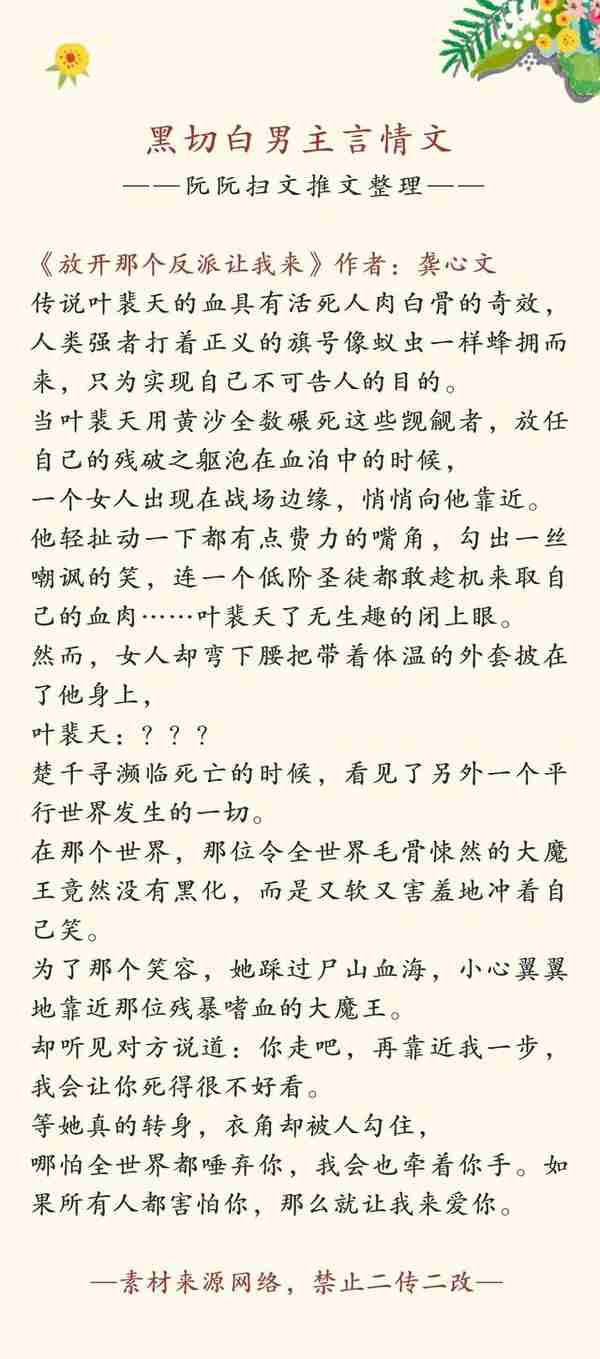 黑切白男主言情文
——阮阮扫文推文整理——
《放开那个反派让我来》作者：龚心文
传说叶裴天的血具有活死人肉白骨的奇效，
人类强者打着正义的旗号像蚁虫一样蜂拥而
来，只为实现自己不可告人的目的。
当叶裴天用黄沙全数碾死这些觊觎者，放任
自己的残破之躯泡在血泊中的时候，
一个女人出现在战场边缘，悄悄向他靠近。
他轻扯动一下都有点费力的嘴角，勾出一丝
嘲讽的笑，连一个低阶圣徒都敢趁机来取自
己的血肉……叶裴天了无生趣的闭上眼。
然而，女人却弯下腰把带着体温的外套披在
了他身上，
叶裴天：？？？
楚千寻濒临死亡的时候，看见了另外一个平
行世界发生的一切。
在那个世界，那位令全世界毛骨悚然的大魔
王竟然没有黑化，而是又软又害羞地冲着自
己笑。
为了那个笑容，她踩过尸山血海，小心翼翼
地靠近那位残暴嗜血的大魔王。
却听见对方说道：你走吧，再靠近我一步，
我会让你死得很不好看。
等她真的转身，衣角却被人勾住，
哪怕全世界都唾弃你，我会也牵着你手。如
果所有人都害怕你，那么就让我来爱你。
—素材来源网络，禁止二传二改—